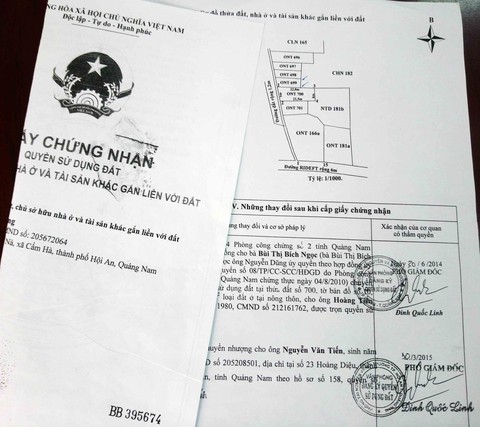 G HÒA XÃ HỘI CHỦ NGHĨA VIỆT NAM
Độc lập - Tự do - Hạnh phúc
ẤY CHỨNG NHẬN
QUYỀN SỬ DỤNG ĐẤT
HÀ Ở VÀ TÀI SẢN KHÁC GẮN LIỀN VỚI ĐẤT
chủ sở hữu nhà ở và tài sản khác gắn liền với đất
ND: 205672064
à, xã Cẩm Hà, thành phố Hội An, Quảng Nam
BB 395674
đồ thửa đất, nhà ở và tài sản khác gắn liền với đất
B
CLN 165
ONT 696
ONT 697
ONT 698
ONT 699
CHN 182
ONT 700
ONT 701
NTD 181b
ONT 166a
ONT 181a
Đường đất rộng
Đường BIDEFT rộng 6m
Tỷ lệ: 1/1000.
V. Những thay đổi sau khi cấp giấy chứng nhận
ng thay đổi và cơ sở pháp lý
Xác nhận của cơ quan
có thẩm quyền
4 Phòng công chứng số 2 tỉnh Quảng Nam
ông cho bà Bùi Thị Bích Ngọc (bà Bùi Thị Bích
ọc ông Nguyễn Dũng ủy quyền theo hợp đồng ủy
quyền số 08/TP/CC-SCC/HĐGD do Phòng
Quảng Nam chứng thực ngày 04/8/2010) chuyển
sử dụng đất tại thửa đất số 700, tờ bản đồ số
loại đất ở tại nông thôn, cho ông Hoàng
1980, CMND số 212161762, được trọn quyền sử
/6/2014
PHÓ GIÁM ĐỐC
Đinh Quốc Linh
uyển nhượng cho ông Nguyễn Văn Tiến, sinh năm
D số 205208501, địa chỉ tại số 23 Hoàng Diệu,
tỉnh Quảng Nam theo hồ sơ số 158,
/3/2015
PHÓ GIÁM ĐỐC
VĂN PHÒNG
ĐĂNG KÝ QUYỀN
SỬ DỤNG ĐẤT
Đinh Quốc Linh